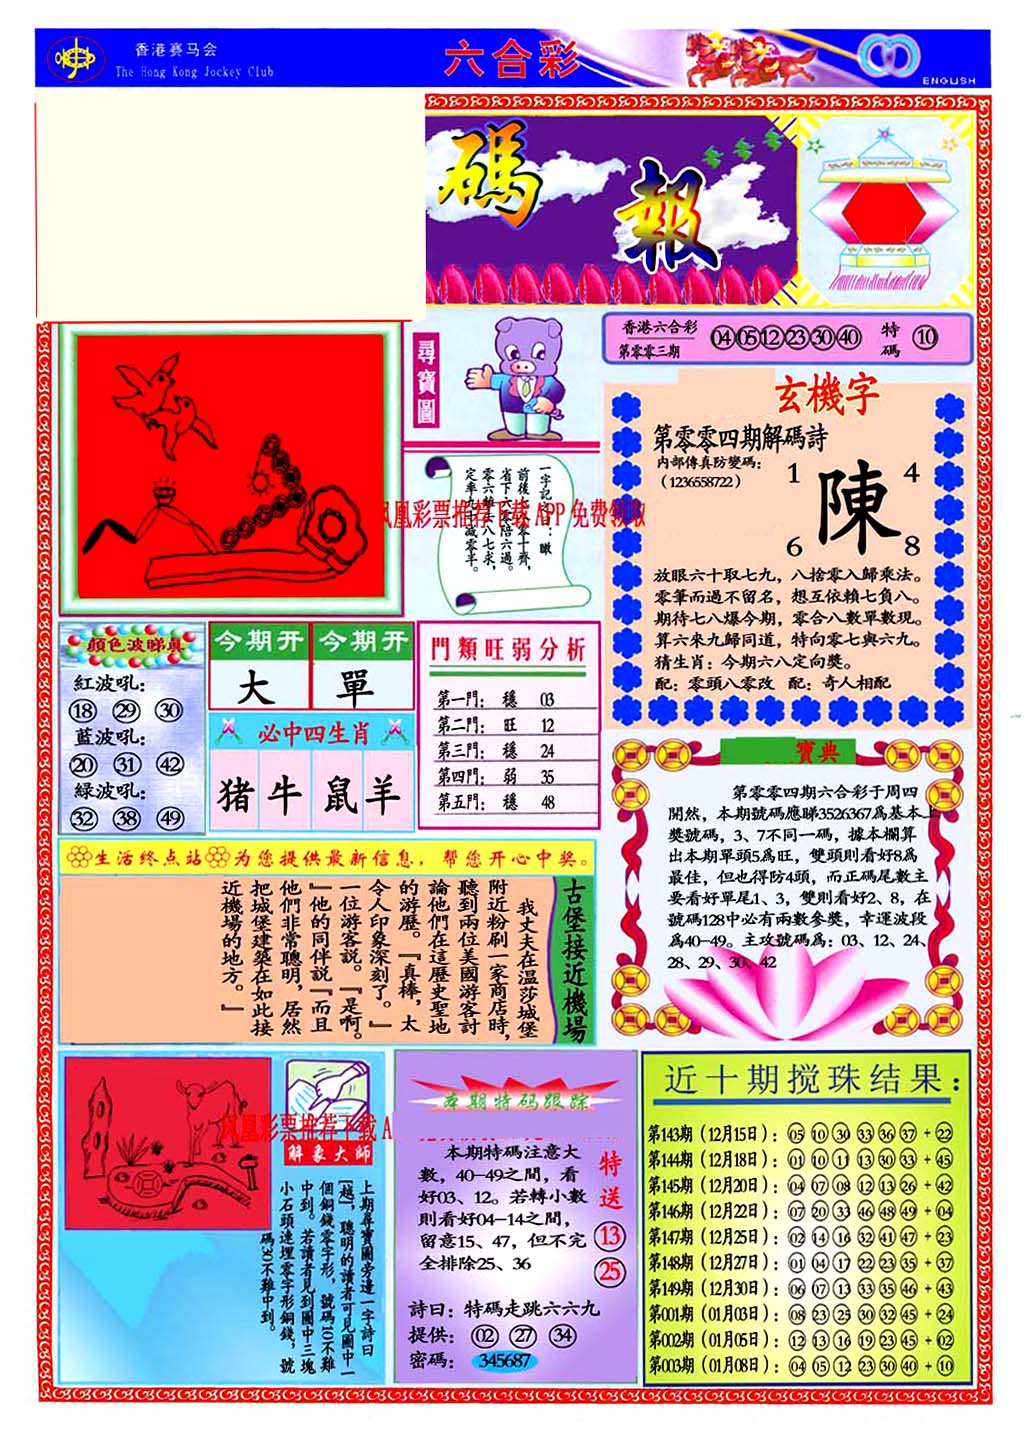 香港赛马会
The Hong Kong Jockey Club
六合彩
ENGLISH
碼報
尋寶圖
香港六合彩
第零零三期
04 05 12 23 30 40
特碼
10
玄機字
第零零四期解碼詩
内部傳真防變碼：
（1236558722）
1 4
陳
6 8
放眼六十取七九，八捨零入歸乘法。
零筆而過不留名，想互依賴七負八。
期待七八爆今期，零合八數單數現。
算六來九歸同道，特向零七與六九。
猜生肖：今期六八定向獎。
配：零頭八零改 配：奇人相配
凤凰彩票推荐下载 APP 免费领取
顏色波睇真
紅波吼：
18 29 30
藍波吼：
20 31 42
綠波吼：
32 38 49
今期开
大
今期开
單
必中四生肖
猪牛鼠羊
門類旺弱分析
第一門： 穩 03
第二門： 旺 12
第三門： 穩 24
第四門： 弱 35
第五門： 穩 48
寶典
第零零四期六合彩于周四
開然，本期號碼應睇3526367爲基本上
獎號碼，3、7不同一碼，據本欄算
出本期單頭5爲旺，雙頭則看好8爲
最佳，但也得防4頭，而正碼尾數主
要看好單尾1、3，雙則看好2、8，在
號碼128中必有兩數參獎，幸運波段
爲40-49。主攻號碼爲：03、12、24、
28、29、30、42
生活终点站 为您提供最新信息，帮您开心中奖。
古堡接近機場
我丈夫在温莎城堡
附近粉刷一家商店時，
聽到兩位美國游客討
論他們在這歷史聖地
的游歷。『真棒，太
令人印象深刻了。』
一位游客説。『是啊。
』他的同伴説『而且
他們非常聰明，居然
把城堡建築在如此接
近機場的地方。』
解象大師
上期尋寶圖旁邊一字詩曰
[越]，聰明的讀者可見圖中一
個銅錢零字形，號碼10不難
中到。若讀者見到圖中三塊
小石頭連埋零字形銅錢，號
碼30不難中到。
本期特码跟踪
本期特碼注意大
數，40-49之間，看
好03、12。若轉小數
則看好04-14之間，
留意15、47，但不完
全排除25、36
特送
13
25
詩曰：特碼走跳六六九
提供： 02 27 34
密碼： 345687
近十期搅珠结果：
第143期（12月15日）：05 10 30 33 36 37 + 22
第144期（12月18日）：01 10 11 13 30 33 + 45
第145期（12月20日）：04 07 08 12 13 26 + 42
第146期（12月22日）：07 20 33 46 48 49 + 04
第147期（12月25日）：02 14 16 32 41 47 + 23
第148期（12月27日）：01 04 17 22 23 35 + 37
第149期（12月30日）：06 07 13 33 35 46 + 43
第001期（01月03日）：08 23 25 30 32 45 + 24
第002期（01月05日）：12 13 16 19 23 45 + 02
第003期（01月08日）：04 05 12 23 30 40 + 10